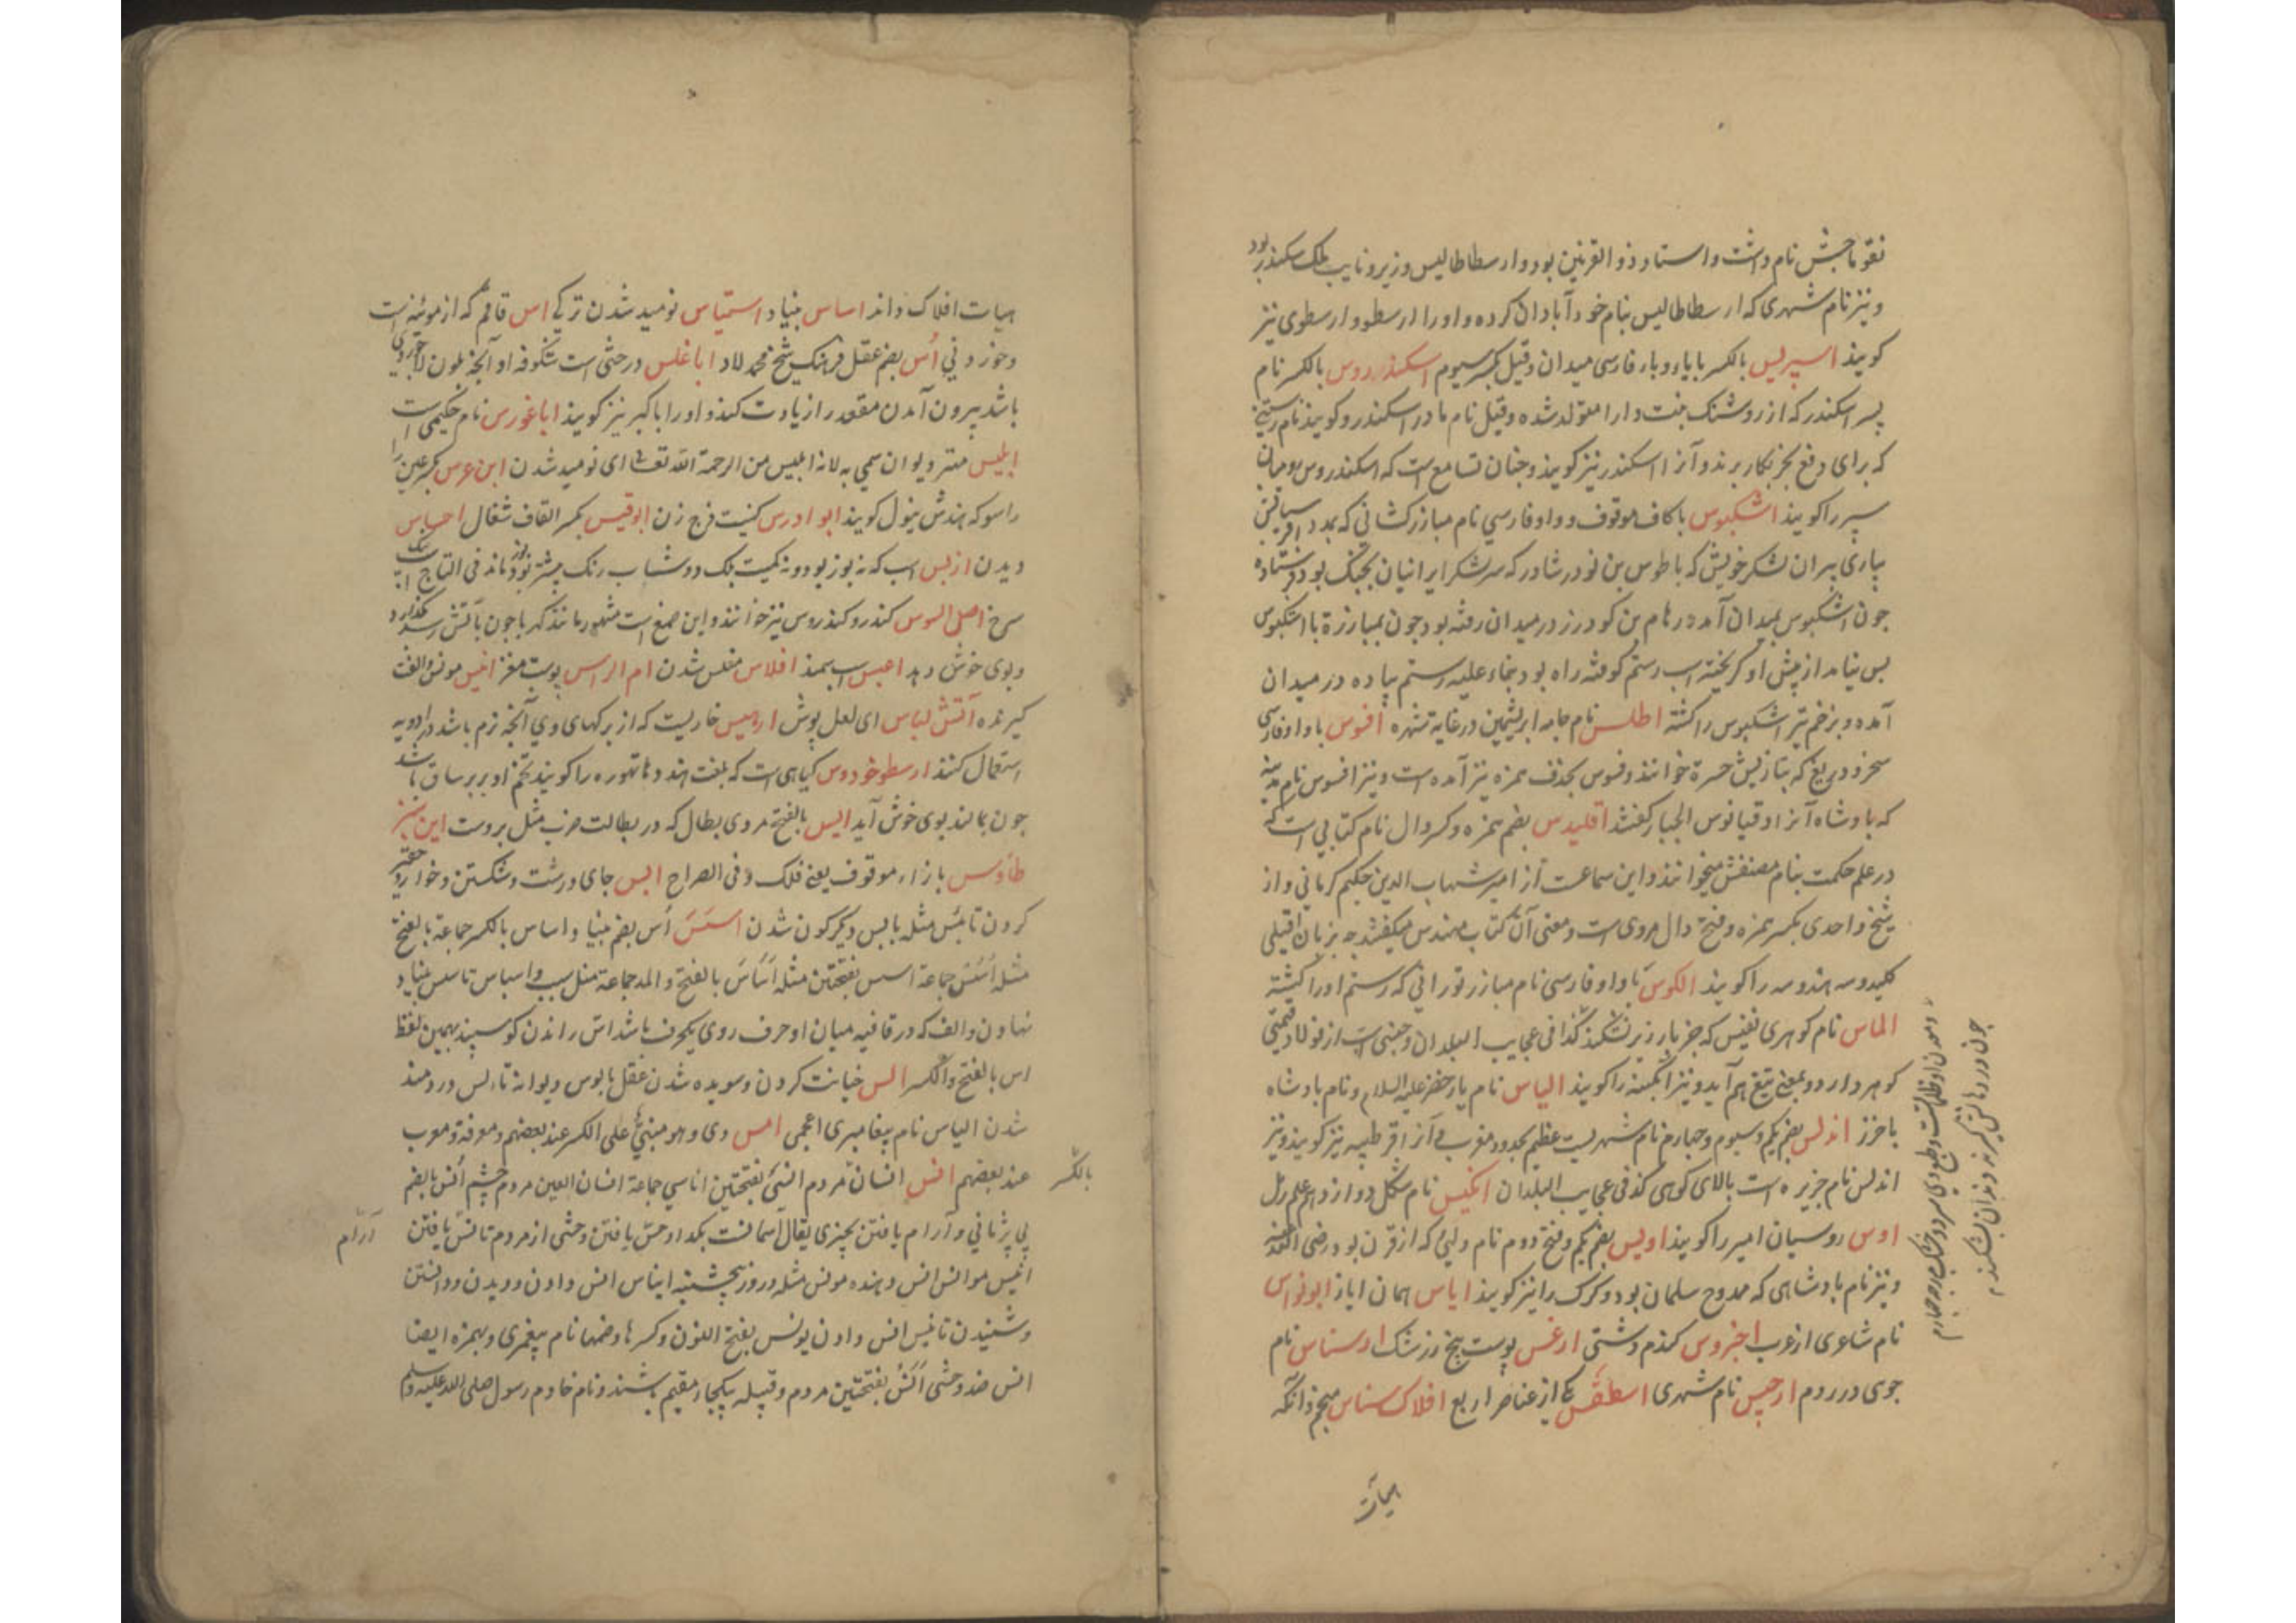 نقوماجش نام داشت و استاد ذو القرنین بود و ارسطاطالیس وزیر و نایب ملک سکندر بود
و نیز نام شهری که ارسطاطالیس بنام خود آبادان کرده و او را ارسطو و ارسطوی نیز
کویند اسپریس بالکسر با یاء و باء فارسی میدان و قیل بکسر سیوم اسکندروس بالکسر نام
پسر اسکندر که از روشنک بنت دارا متولد شده و قیل نام مادر اسکندر و کویند نام
که برای دفع بخر بکار برند و آنرا اسکندر نیز کویند و جنان تسامع است که اسکندروس یومیان
سیر را کویند اشکبوس با کاف موقوف و واو فارسی نام مبارز کشانی که بمدد افراسیاب
بیاری پیران لشکر خویش که با طوس بن نودر شاور که سر لشکر ایرانیان بجنک بود فرستاده
جون اشکبوس بمیدان آمد رهام بن کودرز در میدان رفته بود جون بمبارزة با اشکبوس
بس نیامد از پیش او کریخته اسب رستم کوفته راه بود بناء علیه رستم پیاده در میدان
آمده و بزخم تیر اشکبوس را کشته اطلس نام جامه ابریشمین در غایة شهره افسوس با واو فارسی
سخر و دریغ که بتازیش حسرة خوانند و فسوس بحذف همزه نیز آمده است و نیز افسوس نام مدینه
که بادشاه آنرا دقیانوس الجبار کفتند اقلیدس بضم همزه و کسر دال نام کتابی است که
در علم حکمت بنام مصنفش میخوانند و این سماعت از امیر شهاب الدین حکیم کرمانی و از
شیخ واحدی بکسر همزه و فتح دال مروی است و معنی آن کتاب مهندس میکفتند جه بزبان
کلید و سه هندوسه را کویند الکوس با واو فارسی نام مبارز تورانی که رستم او را کشته
الماس نام کوهری نفیس که جز بارزیز نشکند کذا فی عجایب البلدان و جنسی است از فولاد قیمتی
کوهر دارد و بمعنی تیغ هم آید و نیز آبکینه را کویند الیاس نام یار خضر علیه السلام و نام بادشاه
با خزر اندلس بضم یکم و سیوم و جهارم نام شهریست عظیم بحدود مغرب و آنرا قرطبه نیز کویند و نیز
اندلس نام جزیره است بالای کوهی کذ فی عجایب البلدان انکیس نام شکل دوازدهم علم رمل
اوس روسیان امیر را کویند اویس بضم یکم و فتح دوم نام ولیی که از قرن بود رضی الله عنه
و نیز نام بادشاهی که ممدوح سلمان بود و کرک را نیز کویند ایاس همان ایاز ابونواس
نام شاعری از عرب اخروس کندم دشتی ارغس پوست بیخ زرشک ارسناس نام
جوی در روم ارجیس نام شهری اسطقس یکی از عناصر اربع افلاک سناس منجم و آنکه
هیات
جون در دهان کیرند دندان بشکند
هیات افلاک داند اساس بنیاد استیاس نومید شدن ترکی اس قاقم که از موئینه است
و خوردنی اُس بضم عقل فرهنک شیخ محمد لاد اباغلس درختی است شکوفه او آنجه بلون لاجوردی
باشد بیرون آمدن مقعد را زیادت کند و او را اباکبر نیز کویند اباغورس نام حکیمی است
ابلیس مهتر دیوان سمی به لانه ابلیس من الرحمة الله تعالی ای نومید شدن ابن عرس بکسر عین
راسو که هندش نیول کویند ابو ادرس کنیت فرج زن ابوقیس بکسر القاف شغال احساس
دیدن ازبس اسب که نه بوز بود و نه کمیت بلک دوشاب رنک بیشتر بوز ماند فی التاج
سرخ اصل السوس کندر و کندروس نیز خوانند و این صمغ است مشهور مانند کهربا جون بآتش رسد بکدازد
و بوی خوش دهد اعبس اسب سمند افلاس مفلس شدن ام الراس پوست مغز انیس مونس و الفت
کیرنده آتش لباس ای لعل پوش ارمیس خاریست که از برکهای وی آنجه نرم باشد در ادویه
استعمال کنند ارسطوخودوس کیاهی است که بلغت هند دهاتهوره را کویند تخم او بر سر ساق باشد
جون بمالند بوی خوش آید الیس بالفتح مردی بطال که در بطالت ضرب مثل بروست این سبز
طاؤس باراء موقوف یعنی فلک و فی الصراح ابس جای درشت و شکستن و خوار و حقیر
کردن تابس مثله یابس دیکر کون شدن اسس اُس بضم بنیاد اساس بالکسر جماعة بالفتح
مثله اُسُس جماعة اسس بفتحتین مثله اَساس بالفتح و المد جماعة مثل سبب و اسباب تاسیس بنیاد
نهادن و الف که در قافیه میان او حرف روی یکحرف باشد اس راندن کوسپند بهمین لفظ
اس بالفتح و الکسر الس خیانت کردن و سویده شدن عقل مالوس دیوانه تالس دردمند
شدن الیاس نام پیغامبری اعجمی امس دی و هو مبنی علی الکسر عند بعضهم و معرفة و معرب
عند بعضهم انس انسان مردم انسی بفتحتین اناسی جماعة انسان العین مردم چشم اُنس بالضم
بالکسر
بی پژمانی و آرام یافتن بچیزی یقال آنست بکذا و حس یافتن و وحشی از مردم تانس یافتن
آرام
انیس موانس انس دهنده مونس مثله و روز پنجشنبه ایناس انس دادن و دیدن و دانستن
و شنیدن تانیس انس دادن یونس بفتح النون و کسرها و ضمها نام پیغمبری و بهمزه ایضا
انس ضد وحشی اَنَس بفتحتین مردم و قبیله بیکجا مقیم باشند و نام خادم رسول صلی الله علیه و سلم